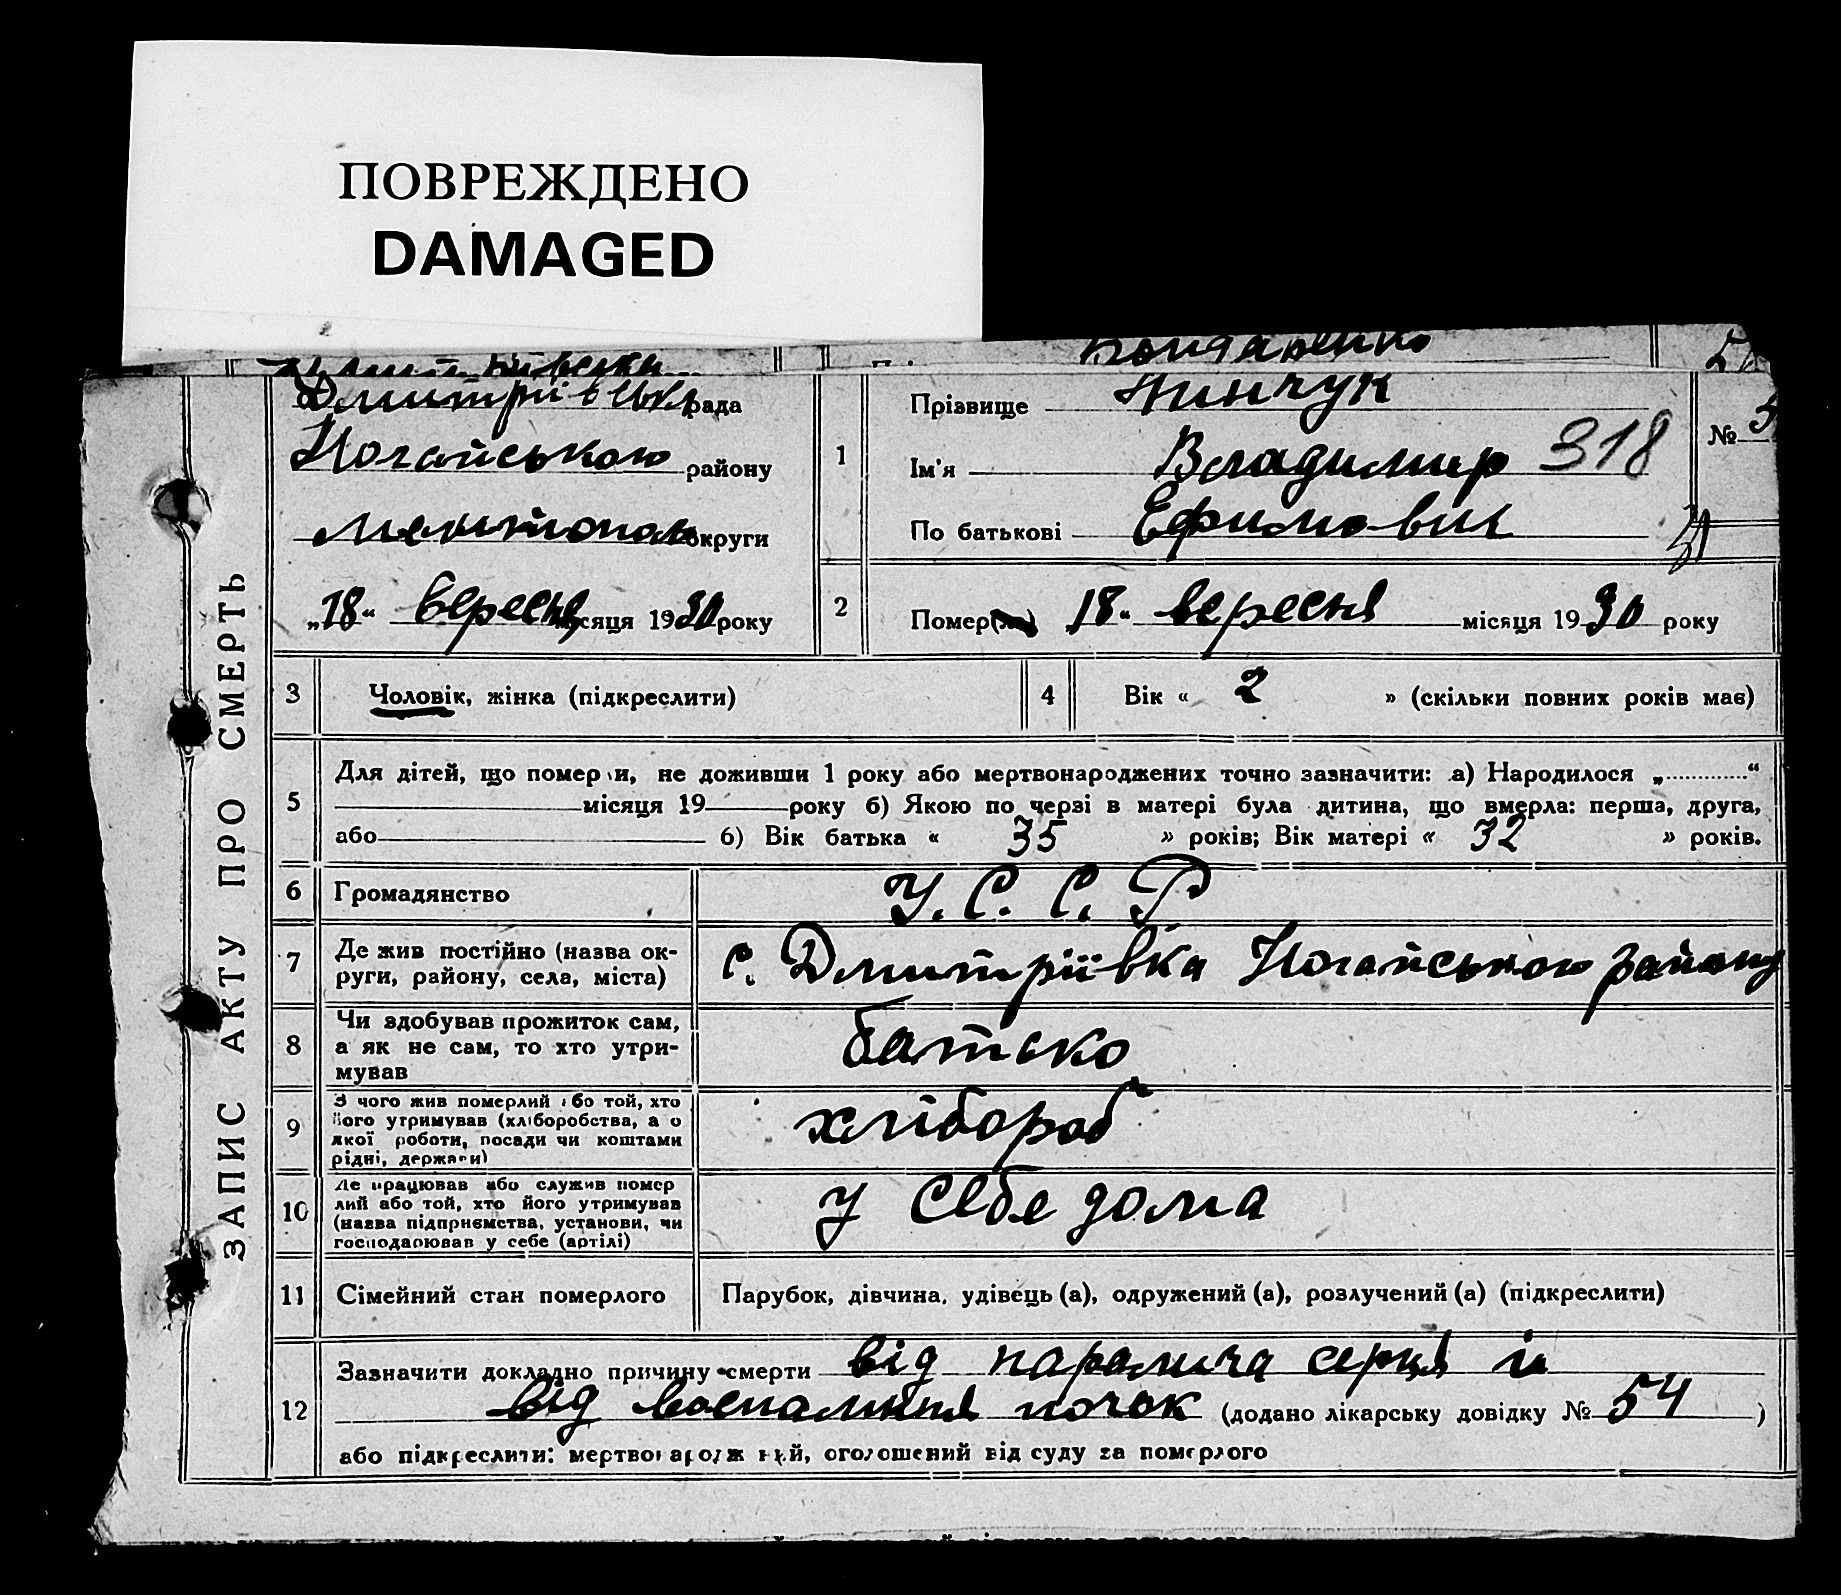 ПОВРЕЖДЕНО
DAMAGED
Бондаренко
ЗАПИС АКТУ ПРО СМЕРТЬ
Дмитріївська рада
Ногайського району
Мелитополь округи
„18“ вересня місяця 1930 року
1
Прізвище Нинчук
Ім'я Владимир 318
По батькові Ефимович
№ 5
2
Помер(ла) 18“ вересня місяця 1930 року
3 Чоловік, жінка (підкреслити)
4 Вік « 2 » (скільки повних років має)
5 Для дітей, що померли, не доживши 1 року або мертвонароджених точно зазначити: а) Народилося „ “
місяця 19 року б) Якою по черзі в матері була дитина, що вмерла: перша, друга,
або 6) Вік батька « 35 » років; Вік матері « 32 » років.
6 Громадянство У. С. С. Р
7 Де жив постійно (назва ок-
руги, району, села, міста)
с. Дмитріївка Ногайського району
8 Чи здобував прожиток сам,
а як не сам, то хто утри-
мував
батько
9 З чого жив померлий або той, хто
його утримував (хліборобства, а о
якої роботи, посади чи коштами
рідні, держави)
хлібороб
10 Де працював або служив помер
лий або той, хто його утримував
(назва підприємства, установи, чи
господарював у себе (артілі)
у себе дома
11 Сімейний стан померлого Парубок, дівчина, удівець (а), одружений (а), розлучений (а) (підкреслити)
12 Зазначити докладно причину смерти від параліча серця і
від воспаління почок (додано лікарську довідку № 54 )
або підкреслити: мертвонароджений, оголошений від суду за померлого